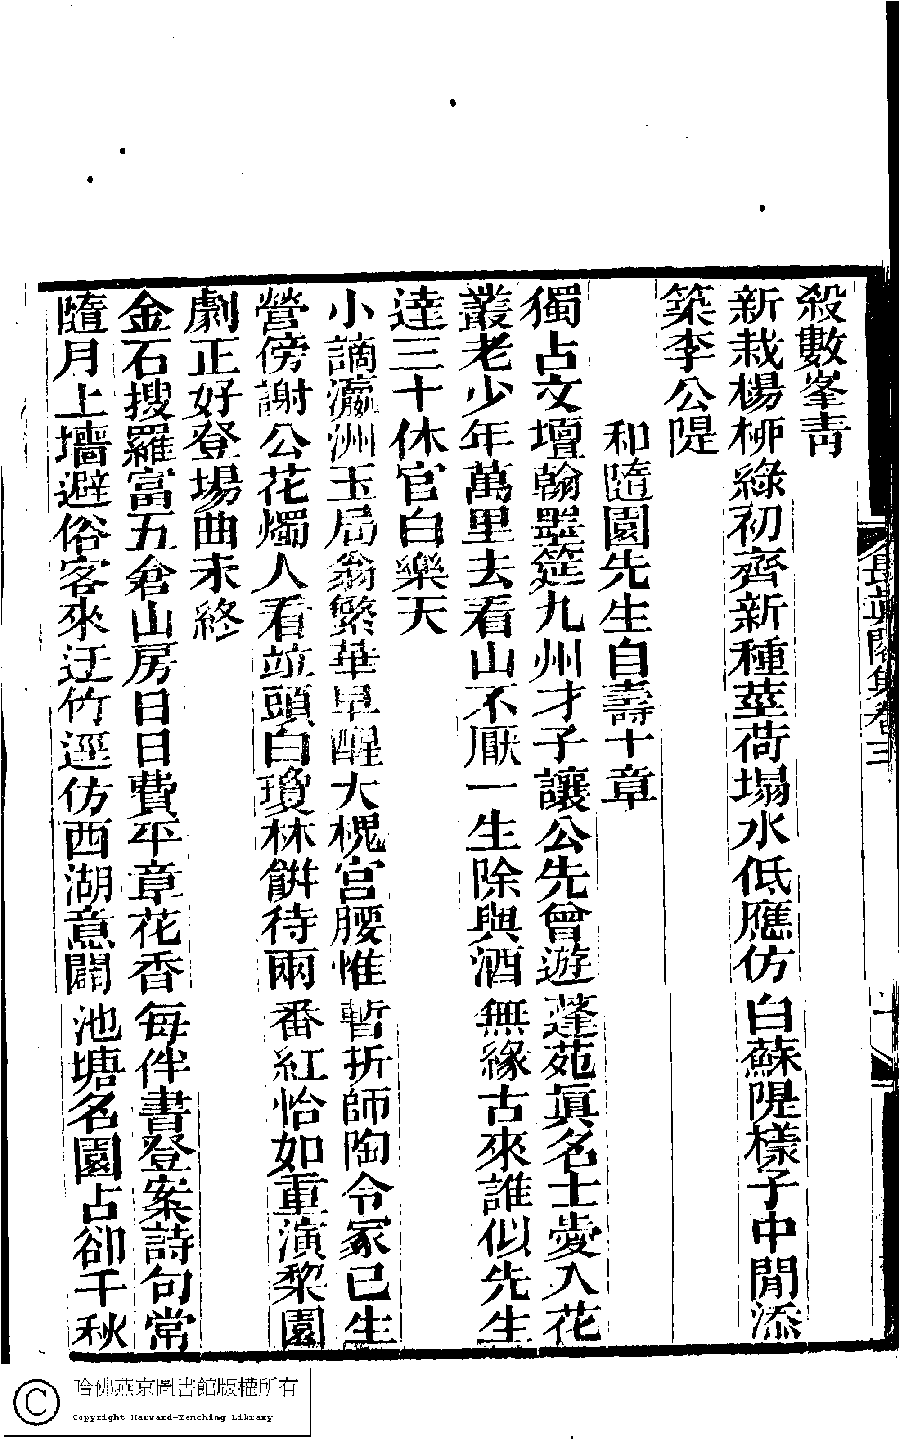 殺數峯青
新栽楊柳綠初齊新種莖荷塌水低應仿白蘇隄樣子中閒添
築李公隄
和隨園先生自壽十章
獨占文壇翰墨筵九州才子讓公先曾遊蓬苑眞名士愛入花
叢老少年萬里去看山不厭一生除與酒無緣古來誰似先生
達三十休官白樂天
小謫瀛洲玉局翁繁華早醒大槐宮腰惟暫折師陶令冢已生
營傍謝公花燭人看竝頭白瓊林餅待兩番紅恰如重演棃園
劇正好登場曲未終
金石搜羅富五倉山房日日費平章花香每伴書登案詩句常
隨月上墻避俗客來迂竹逕仿西湖意闢池塘名園占卻千秋
長眞閣集卷三
哈佛燕京圖書館版權所有
Copyright Harvard-Yenching Library